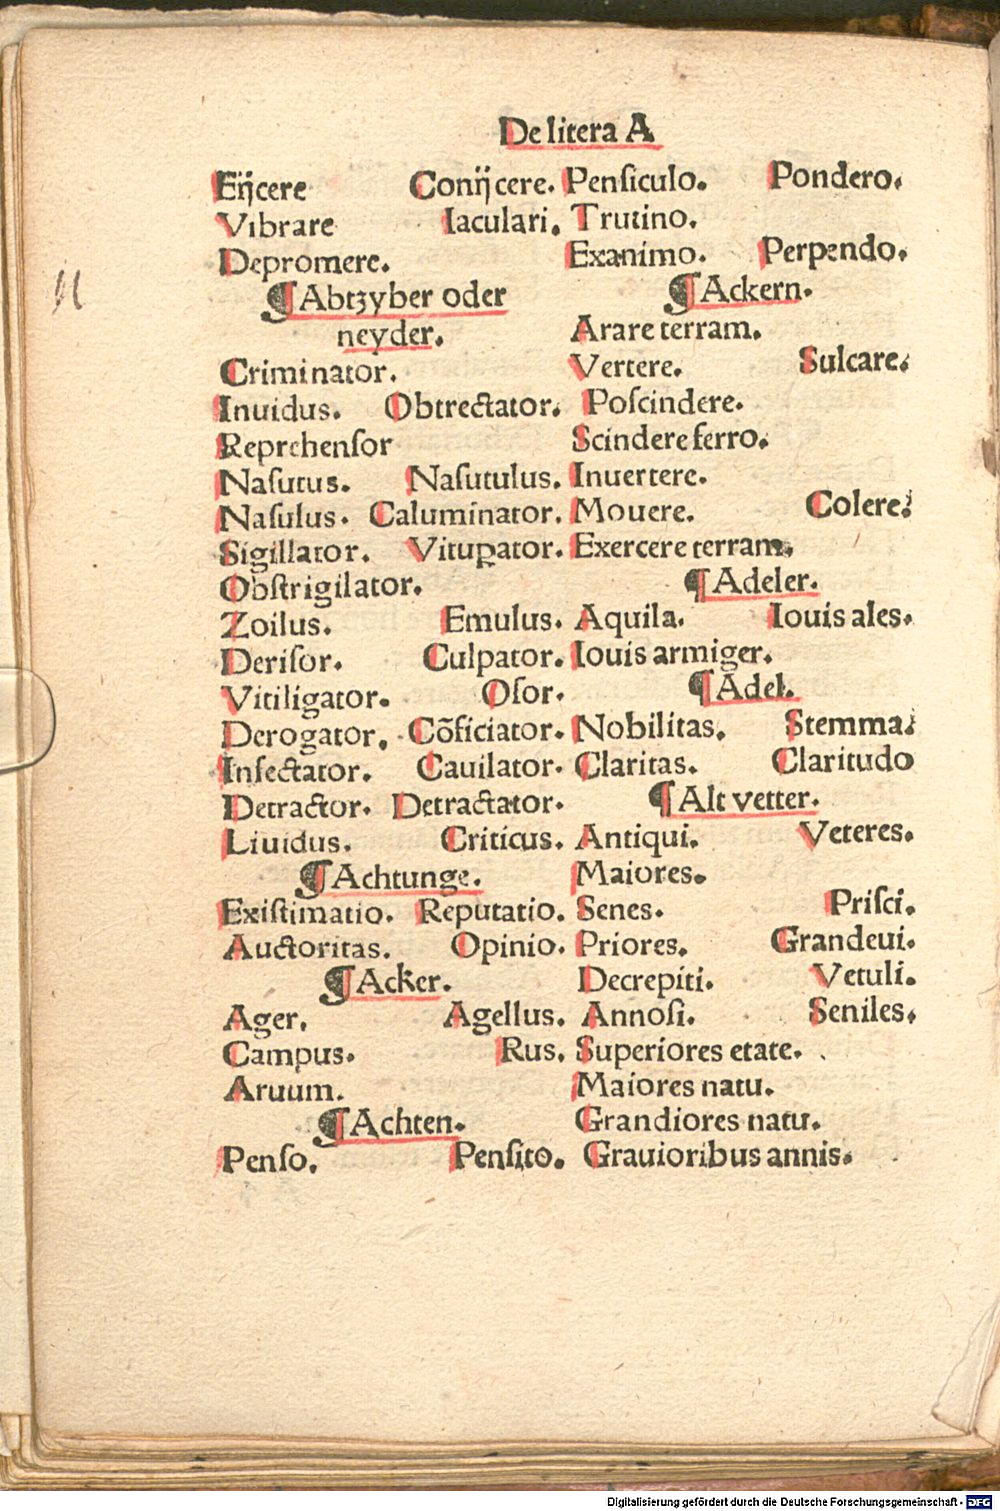 De litera A
Eijcere Conijcere.
Vibrare Iaculari.
Depromere.
¶ Abtzyber oder
neyder.
Criminator.
Inuidus. Obtrectator.
Reprehensor
Nasutus. Nasutulus.
Nasulus. Caluminator.
Sigillator. Vituꝑator.
Obstrigilator.
Zoilus. Emulus.
Derisor. Culpator.
Vitiligator. Osor.
Derogator. Cōficiator.
Insectator. Cauilator.
Detractor. Detractator.
Liuidus. Criticus.
¶ Achtunge.
Existimatio. Reputatio.
Auctoritas. Opinio.
¶ Acker.
Ager. Agellus.
Campus. Rus.
Aruum.
¶ Achten.
Penso. Pensito.
Pensiculo. Pondero.
Trutino.
Exanimo. Perpendo.
¶ Ackern.
Arare terram.
Vertere. Sulcare.
Poscindere.
Scindere ferro.
Inuertere.
Mouere. Colere.
Exercere terram.
¶ Adeler.
Aquila. Iouis ales.
Iouis armiger.
¶ Adel.
Nobilitas. Stemma.
Claritas. Claritudo
¶ Alt vetter.
Antiqui. Veteres.
Maiores.
Senes. Prisci.
Priores. Grandeui.
Decrepiti. Vetuli.
Annosi. Seniles.
Superiores etate.
Maiores natu.
Grandiores natu.
Grauioribus annis.
Digitalisierung gefördert durch die Deutsche Forschungsgemeinschaft - DFG